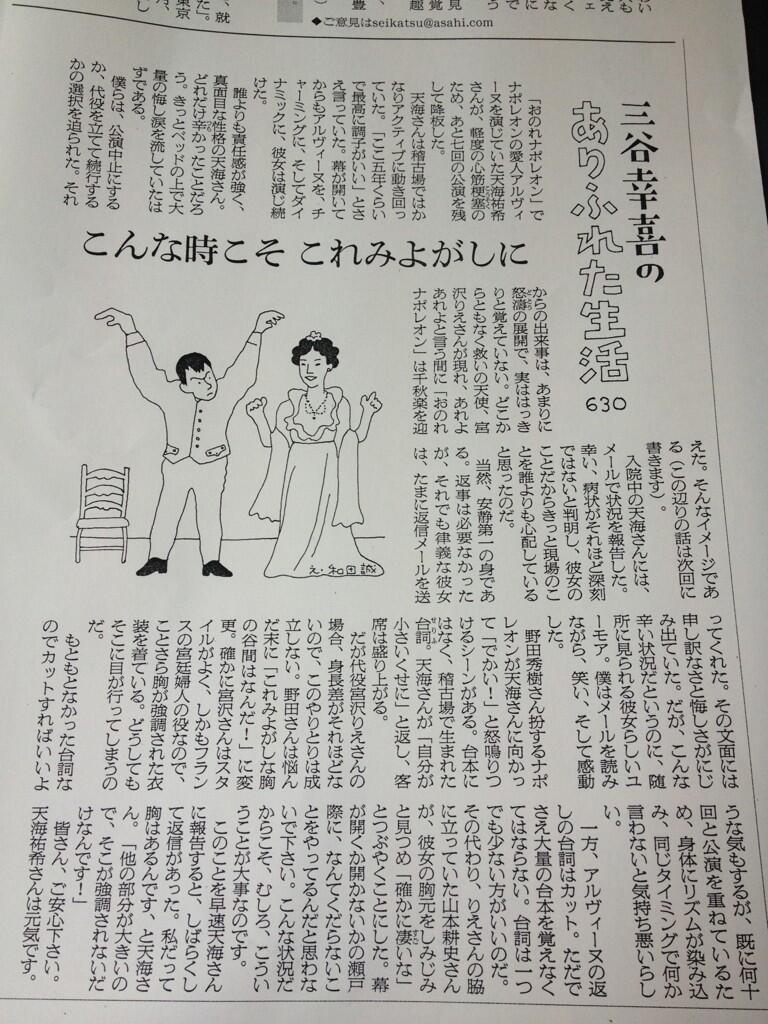 た」。
、就
東京
豊
趣
覚
見
◆ご意見はseikatsu@asahi.com
三谷幸喜の
ありふれた生活
630
こんな時こそ これみよがしに
「おのれナポレオン」で
ナポレオンの愛人アルヴィ
ーヌを演じていた天海祐希
さんが、軽度の心筋梗塞の
ため、あと七回の公演を残
して降板した。
天海さんは稽古場ではか
なりアクティブに動き回っ
ていた。「ここ五年くらい
で最高に調子がいい」とさ
え言っていた。幕が開いて
からもアルヴィーヌを、チ
ャーミングに、そしてダイ
ナミックに、彼女は演じ続
けた。
誰よりも責任感が強く、
真面目な性格の天海さん。
どれだけ辛かったことだろ
う。きっとベッドの上で大
量の悔し涙を流していたは
ずである。
僕らは、公演中止にする
か、代役を立てて続行する
かの選択を迫られた。それ
からの出来事は、あまりに
怒濤の展開で、実ははっき
りと覚えていない。どこか
らともなく救いの天使、宮
沢りえさんが現れ、あれよ
あれよと言う間に「おのれ
ナポレオン」は千秋楽を迎
えた。そんなイメージであ
る（この辺りの話は次回に
書きます）。
入院中の天海さんには、
メールで状況を報告した。
幸い、病状がそれほど深刻
ではないと判明し、彼女の
ことだからきっと現場のこ
とを誰よりも心配している
と思ったのだ。
当然、安静第一の身であ
る。返事は必要なかった
が、それでも律義な彼女
は、たまに返信メールを送
ってくれた。その文面には
申し訳なさと悔しさがにじ
み出ていた。だが、こんな
辛い状況だというのに、随
所に見られる彼女らしいユ
ーモア。僕はメールを読み
ながら、笑い、そして感動
した。
野田秀樹さん扮するナポ
レオンが天海さんに向かっ
て「でかい！」と怒鳴りつ
けるシーンがある。台本に
はなく、稽古場で生まれた
台詞。天海さんが「自分が
小さいくせに」と返し、客
席は盛り上がる。
だが代役宮沢りえさんの
場合、身長差がそれほどな
いので、このやりとりは成
立しない。野田さんは悩ん
だ末に「これみよがしな胸
の谷間はなんだ！」に変
更。確かに宮沢さんはスタ
イルがよく、しかもフラン
スの宮廷婦人の役なので、
ことさら胸が強調された衣
装を着ている。どうしても
そこに目が行ってしまうの
だ。
もともとなかった台詞な
のでカットすればいいよ
うな気もするが、既に何十
回と公演を重ねているた
め、身体にリズムが染み込
み、同じタイミングで何か
言わないと気持ち悪いらし
い。
一方、アルヴィーヌの返
しの台詞はカット。ただで
さえ大量の台本を覚えなく
てはならない。台詞は一つ
でも少ない方がいいのだ。
その代わり、りえさんの脇
に立っていた山本耕史さん
が、彼女の胸元をしみじみ
と見つめ「確かに凄いな」
とつぶやくことにした。幕
が開くか開かないかの瀬戸
際に、なんてくだらないこ
とをやってるんだと思わな
いで下さい。こんな状況だ
からこそ、むしろ、こうい
うことが大事なのです。
このことを早速天海さん
に報告すると、しばらくし
て返信があった。私だって
胸はあるんです、と天海さ
ん。「他の部分が大きいの
で、そこが強調されないだ
けなんです！」
皆さん、ご安心下さい。
天海祐希さんは元気です。
え・和田誠